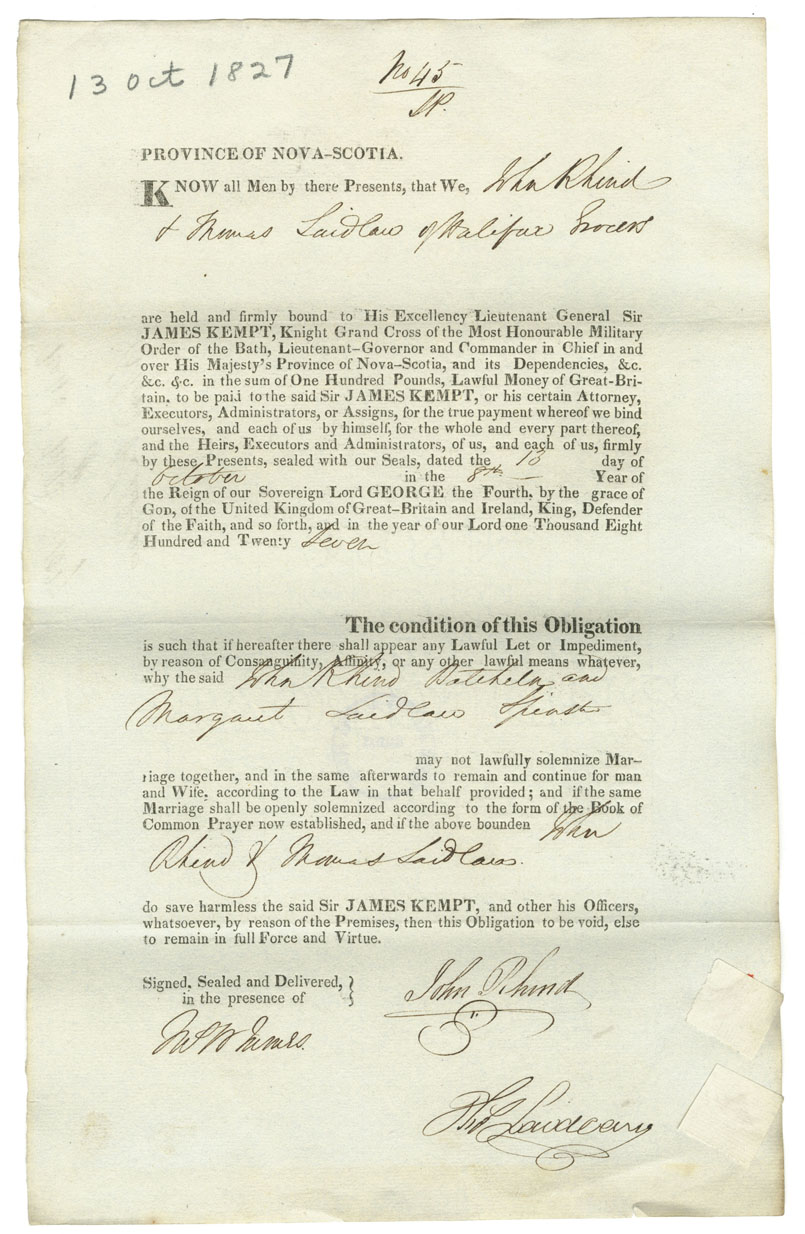 13 Oct 1827
No 45
PROVINCE OF NOVA-SCOTIA.
KNOW all Men by there Presents, that We, John Rhind
& Thomas Laidlaw of Halifax Grocers
are held and firmly bound to His Excellency Lieutenant General Sir
JAMES KEMPT, Knight Grand Cross of the Most Honourable Military
Order of the Bath, Lieutenant-Governor and Commander in Chief in and
over His Majesty's Province of Nova-Scotia, and its Dependencies, &c.
&c. &c. in the sum of One Hundred Pounds, Lawful Money of Great-Bri-
tain, to be paid to the said Sir JAMES KEMPT, or his certain Attorney,
Executors, Administrators, or Assigns, for the true payment whereof we bind
ourselves, and each of us by himself, for the whole and every part thereof,
and the Heirs, Executors and Administrators, of us, and each of us, firmly
by these Presents, sealed with our Seals, dated the 13 day of
October in the 8th Year of
the Reign of our Sovereign Lord GEORGE the Fourth, by the grace of
GOD, of the United Kingdom of Great-Britain and Ireland, King, Defender
of the Faith, and so forth, and in the year of our Lord one Thousand Eight
Hundred and Twenty Seven
The condition of this Obligation
is such that if hereafter there shall appear any Lawful Let or Impediment,
by reason of Consanguinity, Affinity, or any other lawful means whatever,
why the said John Rhind Batchelor and
Margaret Laidlaw Spinster
may not lawfully solemnize Mar-
riage together, and in the same afterwards to remain and continue for man
and Wife, according to the Law in that behalf provided; and if the same
Marriage shall be openly solemnized according to the form of the Book of
Common Prayer now established, and if the above bounden John
Rhind & Thomas Laidlaw.
do save harmless the said Sir JAMES KEMPT, and other his Officers,
whatsoever, by reason of the Premises, then this Obligation to be void, else
to remain in full Force and Virtue.
Signed, Sealed and Delivered,
in the presence of
John Rhind
Thos Laidlaw